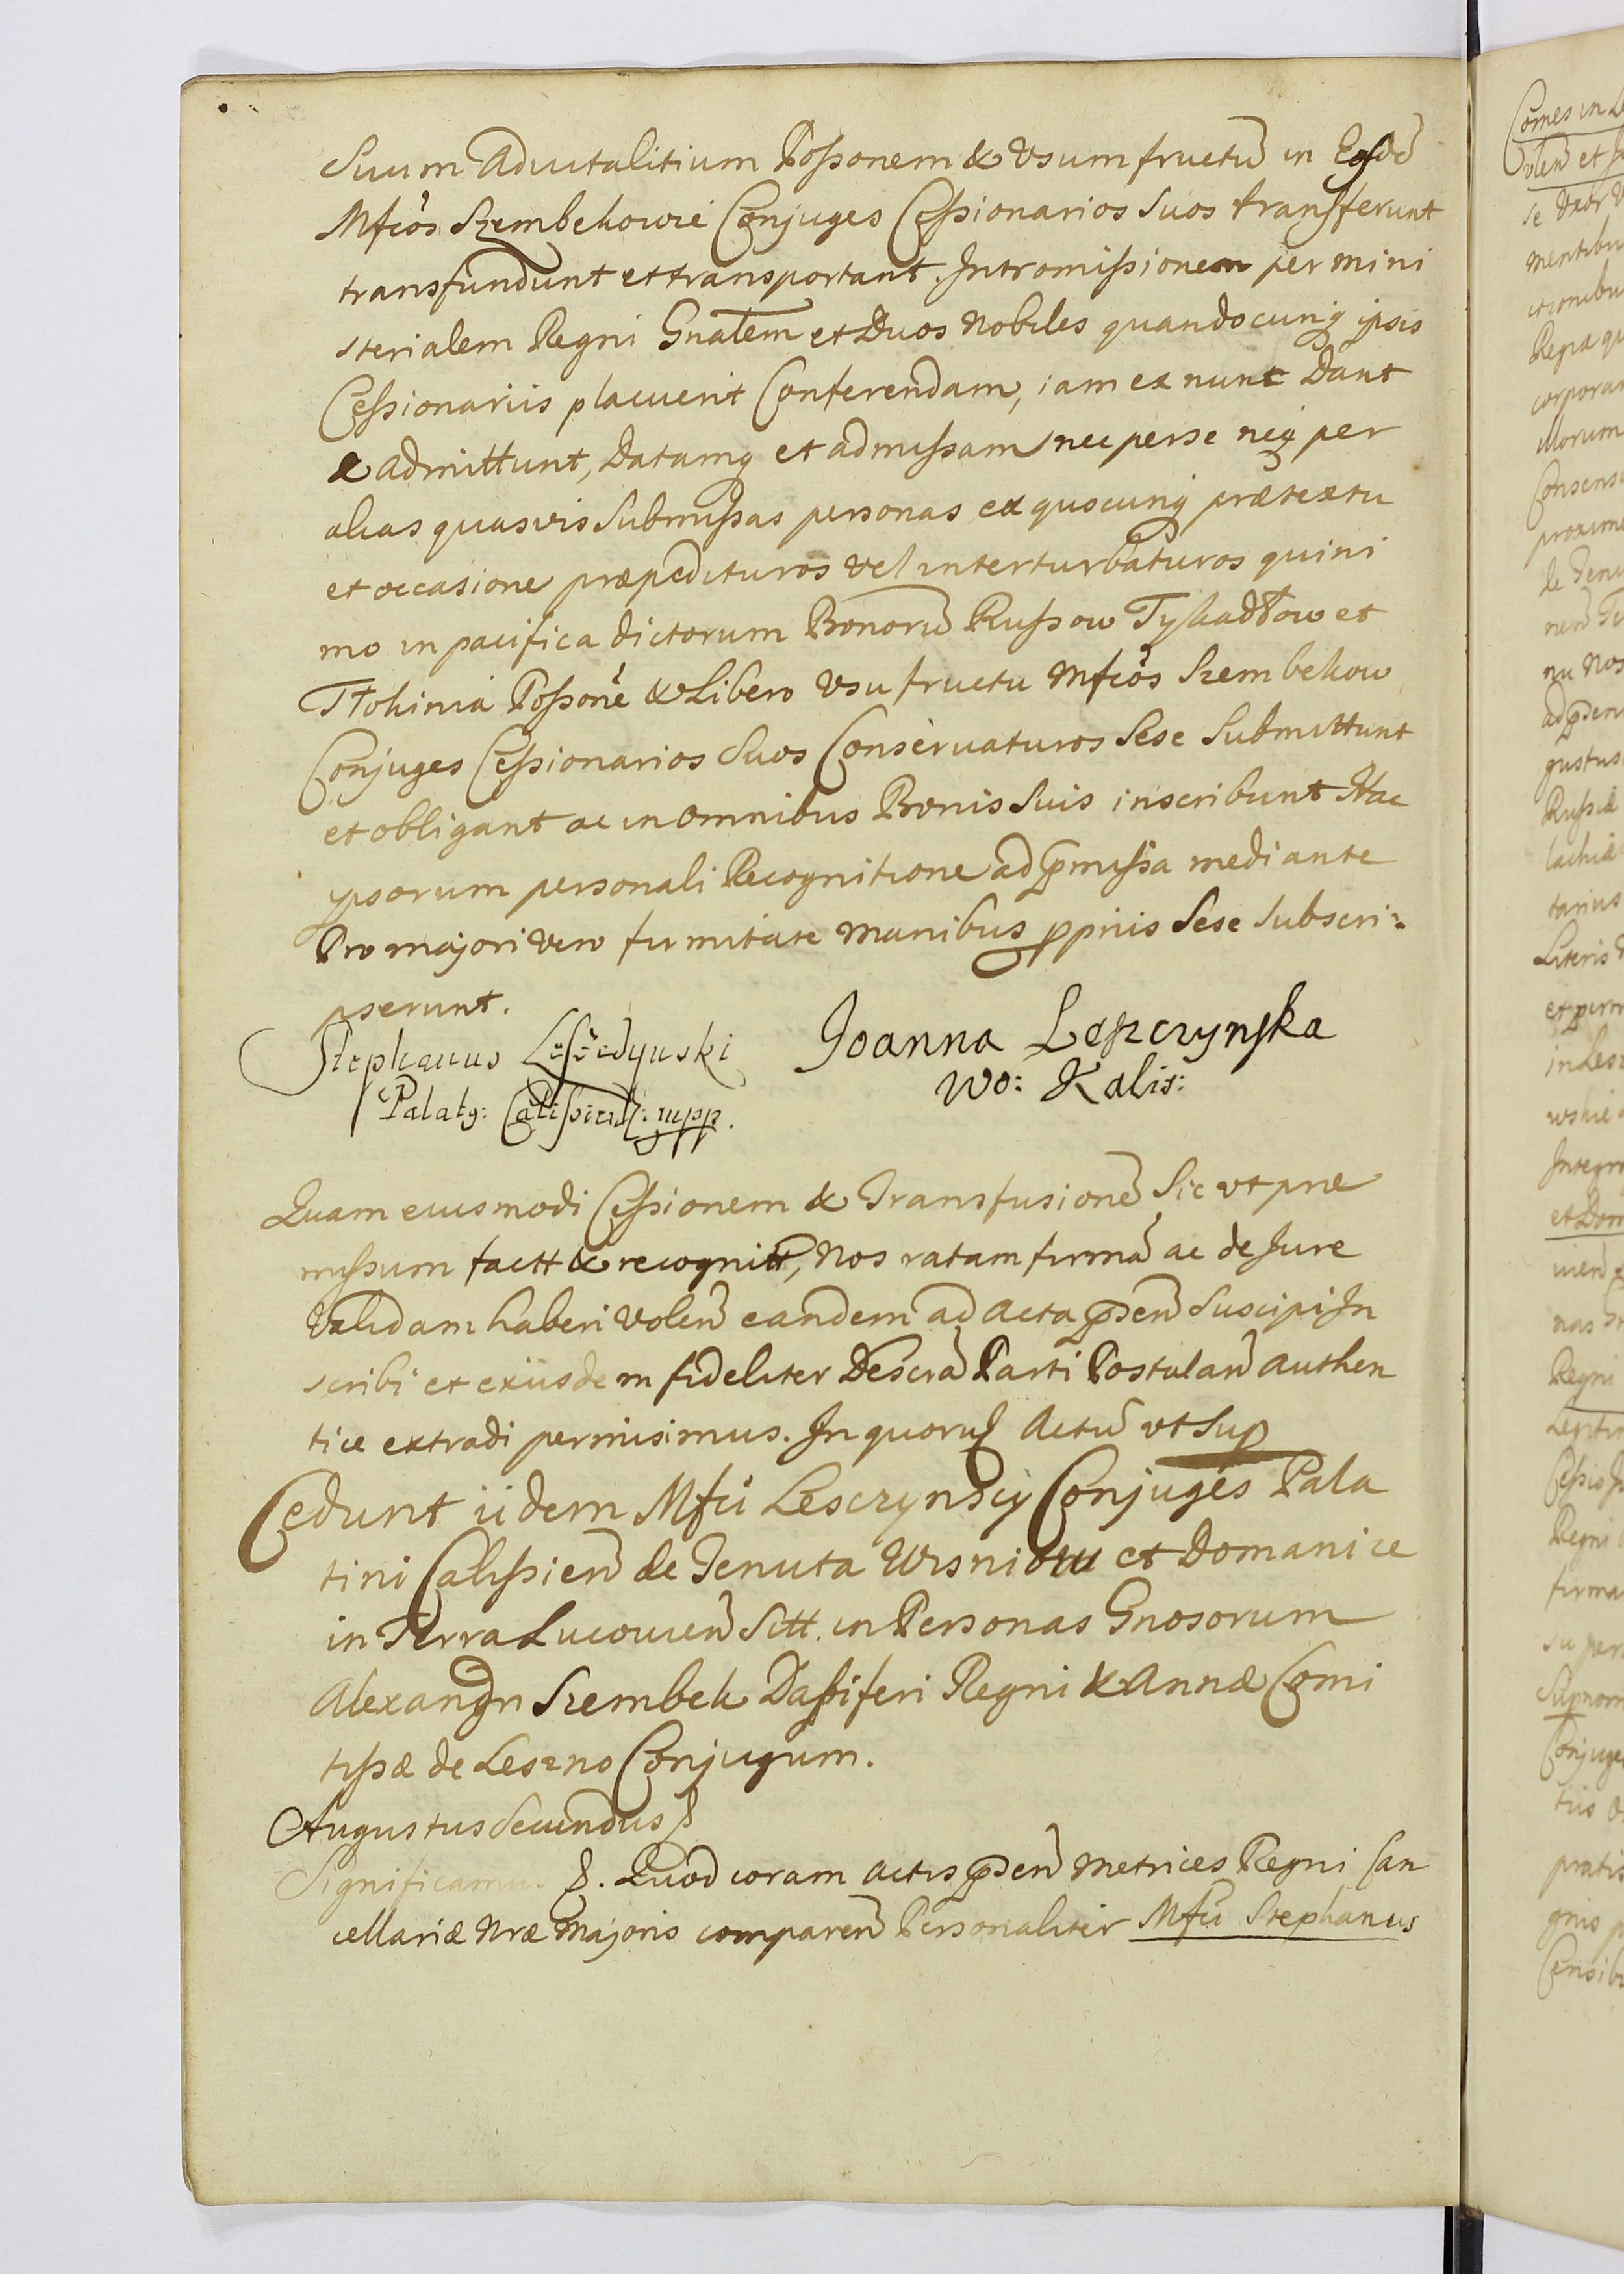 Suum Advitalitium Possonem & Vsumfructũ in Eosdẽ
Mfcos Szembekowie Conjuges Cessionarios Suos transferunt
transfundunt et transportant. Intromissionem per mini
sterialem Regni Gnalem et Duos Nobiles quandocunq ipsis
Cessionariis placuerit Conferendam, iam ex nunc Dant
& admittunt, Datamq et admissam nec per se neq per
alias quasvis Submissas personas ex quocunq prætextu
et occasione præpedituros vel interturbaturos quini
mo in pacifica dictorum Bonorũ Russow Tykadłow et
Tłokinia Possone & Libero Vsufructu Mfcos Szembekow
Conjuges Cessionarios Suos Conservaturos Sese Submittunt
et obligant ac in Omnibus Bonis Suis inscribunt Hac
ipsorum personali Recognitione ad pmissa mediante
Pro majori vero firmitate Manibus ppriis Sese Subscri:
pserunt.
Stephanus Leszczynski
Joanna Leszczynska
Palaty: Calissien: mpp.
Wo: Kalis:
Quam eiusmodi Cessionem & Transfusionẽ Sic vt præ
missum factt & recognitt, Nos ratam firmã ac de Jure
Validam haberi Volen eandem ad Acta psen Suscipi In
scribi et exiisdem fideliter Descrã Parti Postulan Authen
tice extradi permisimus. In quoruȝ Actũ vt Sup
Cedunt iidem Mfci Lesczynscy Conjuges Pala
tini Calissien de Tenuta Wisniow et Domanice
in Terra Lucovien Sitt. in Personas Gnosorum
Alexandri Szembek Dapiferi Regni & Annæ Comi
tissæ de Leszno Conjugum.
Augustus Secundus &
Significamus &. Quod coram Actis psen Metrices Regni Can
cellariæ Nræ Majoris comparen Personaliter Mfci Stephanus